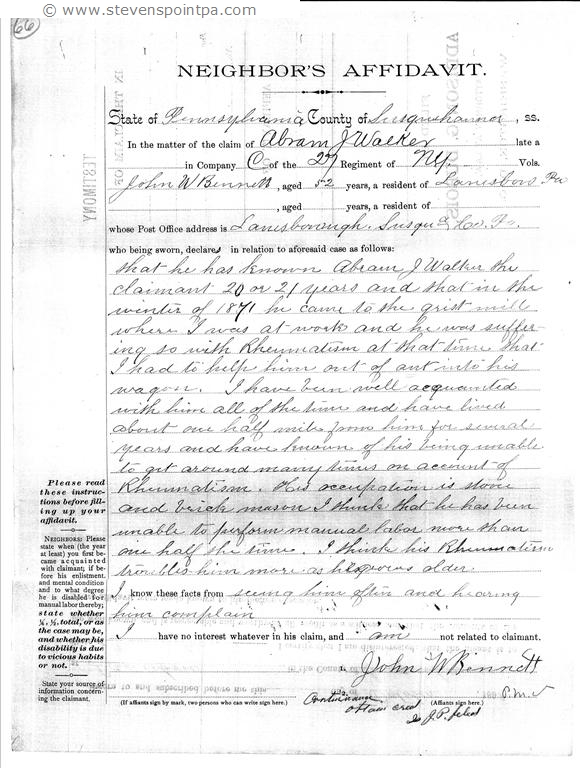 © www.stevenspointpa.com
66
NEIGHBOR'S AFFIDAVIT.
State of Pennsylvania County of Susquehanna, ss.
In the matter of the claim of Abram J Walker late a
in Company C of the 27 Regiment of NY. Vols.
John W Bennett, aged 52 years, a resident of Lanesboro Pa
, aged years, a resident of
whose Post Office address is Lanesborough. Susqu a Co. Pa.
who being sworn, declares in relation to aforesaid case as follows:
that he has known Abram J Walker the
claimant 20 or 21 years and that in the
winter of 1871 he came to the grist mill
where I was at work and he was suffer-
ing so with Rheumatism at that time that
I had to help him out of and into his
wagon. I have been well acquainted
with him all of the time and have lived
about one half mile from him for several
years and have known of his being unable
to get around many times on account of
Rheumatism. His occupation is stone
and brick mason I think that he has been
unable to perform manual labor more than
one half the time. I think his Rheumatism
troubles him more as he grows older.
I know these facts from seeing him often and hearing
him complain
I have no interest whatever in his claim, and I am not related to claimant.
John W Bennett
(If affiants sign by mark, two persons who can write sign here.)
(Affiants sign here.)
P.M.
J.P.
Please read
these instruc-
tions before fill-
ing up your
affidavit.
NEIGHBORS: Please
state when (the year
at least) you first be-
came acquainted
with claimant; if be-
fore his enlistment,
and mental condition
and to what degree
he is disabled for
manual labor thereby;
state whether
¼, ½, total, or as
the case may be,
and whether his
disability is due
to vicious habits
or not.
State your source of
information concern-
ing the claimant.
TESTIMONY
IN THE CLAIM OF
to and subscribed before me this